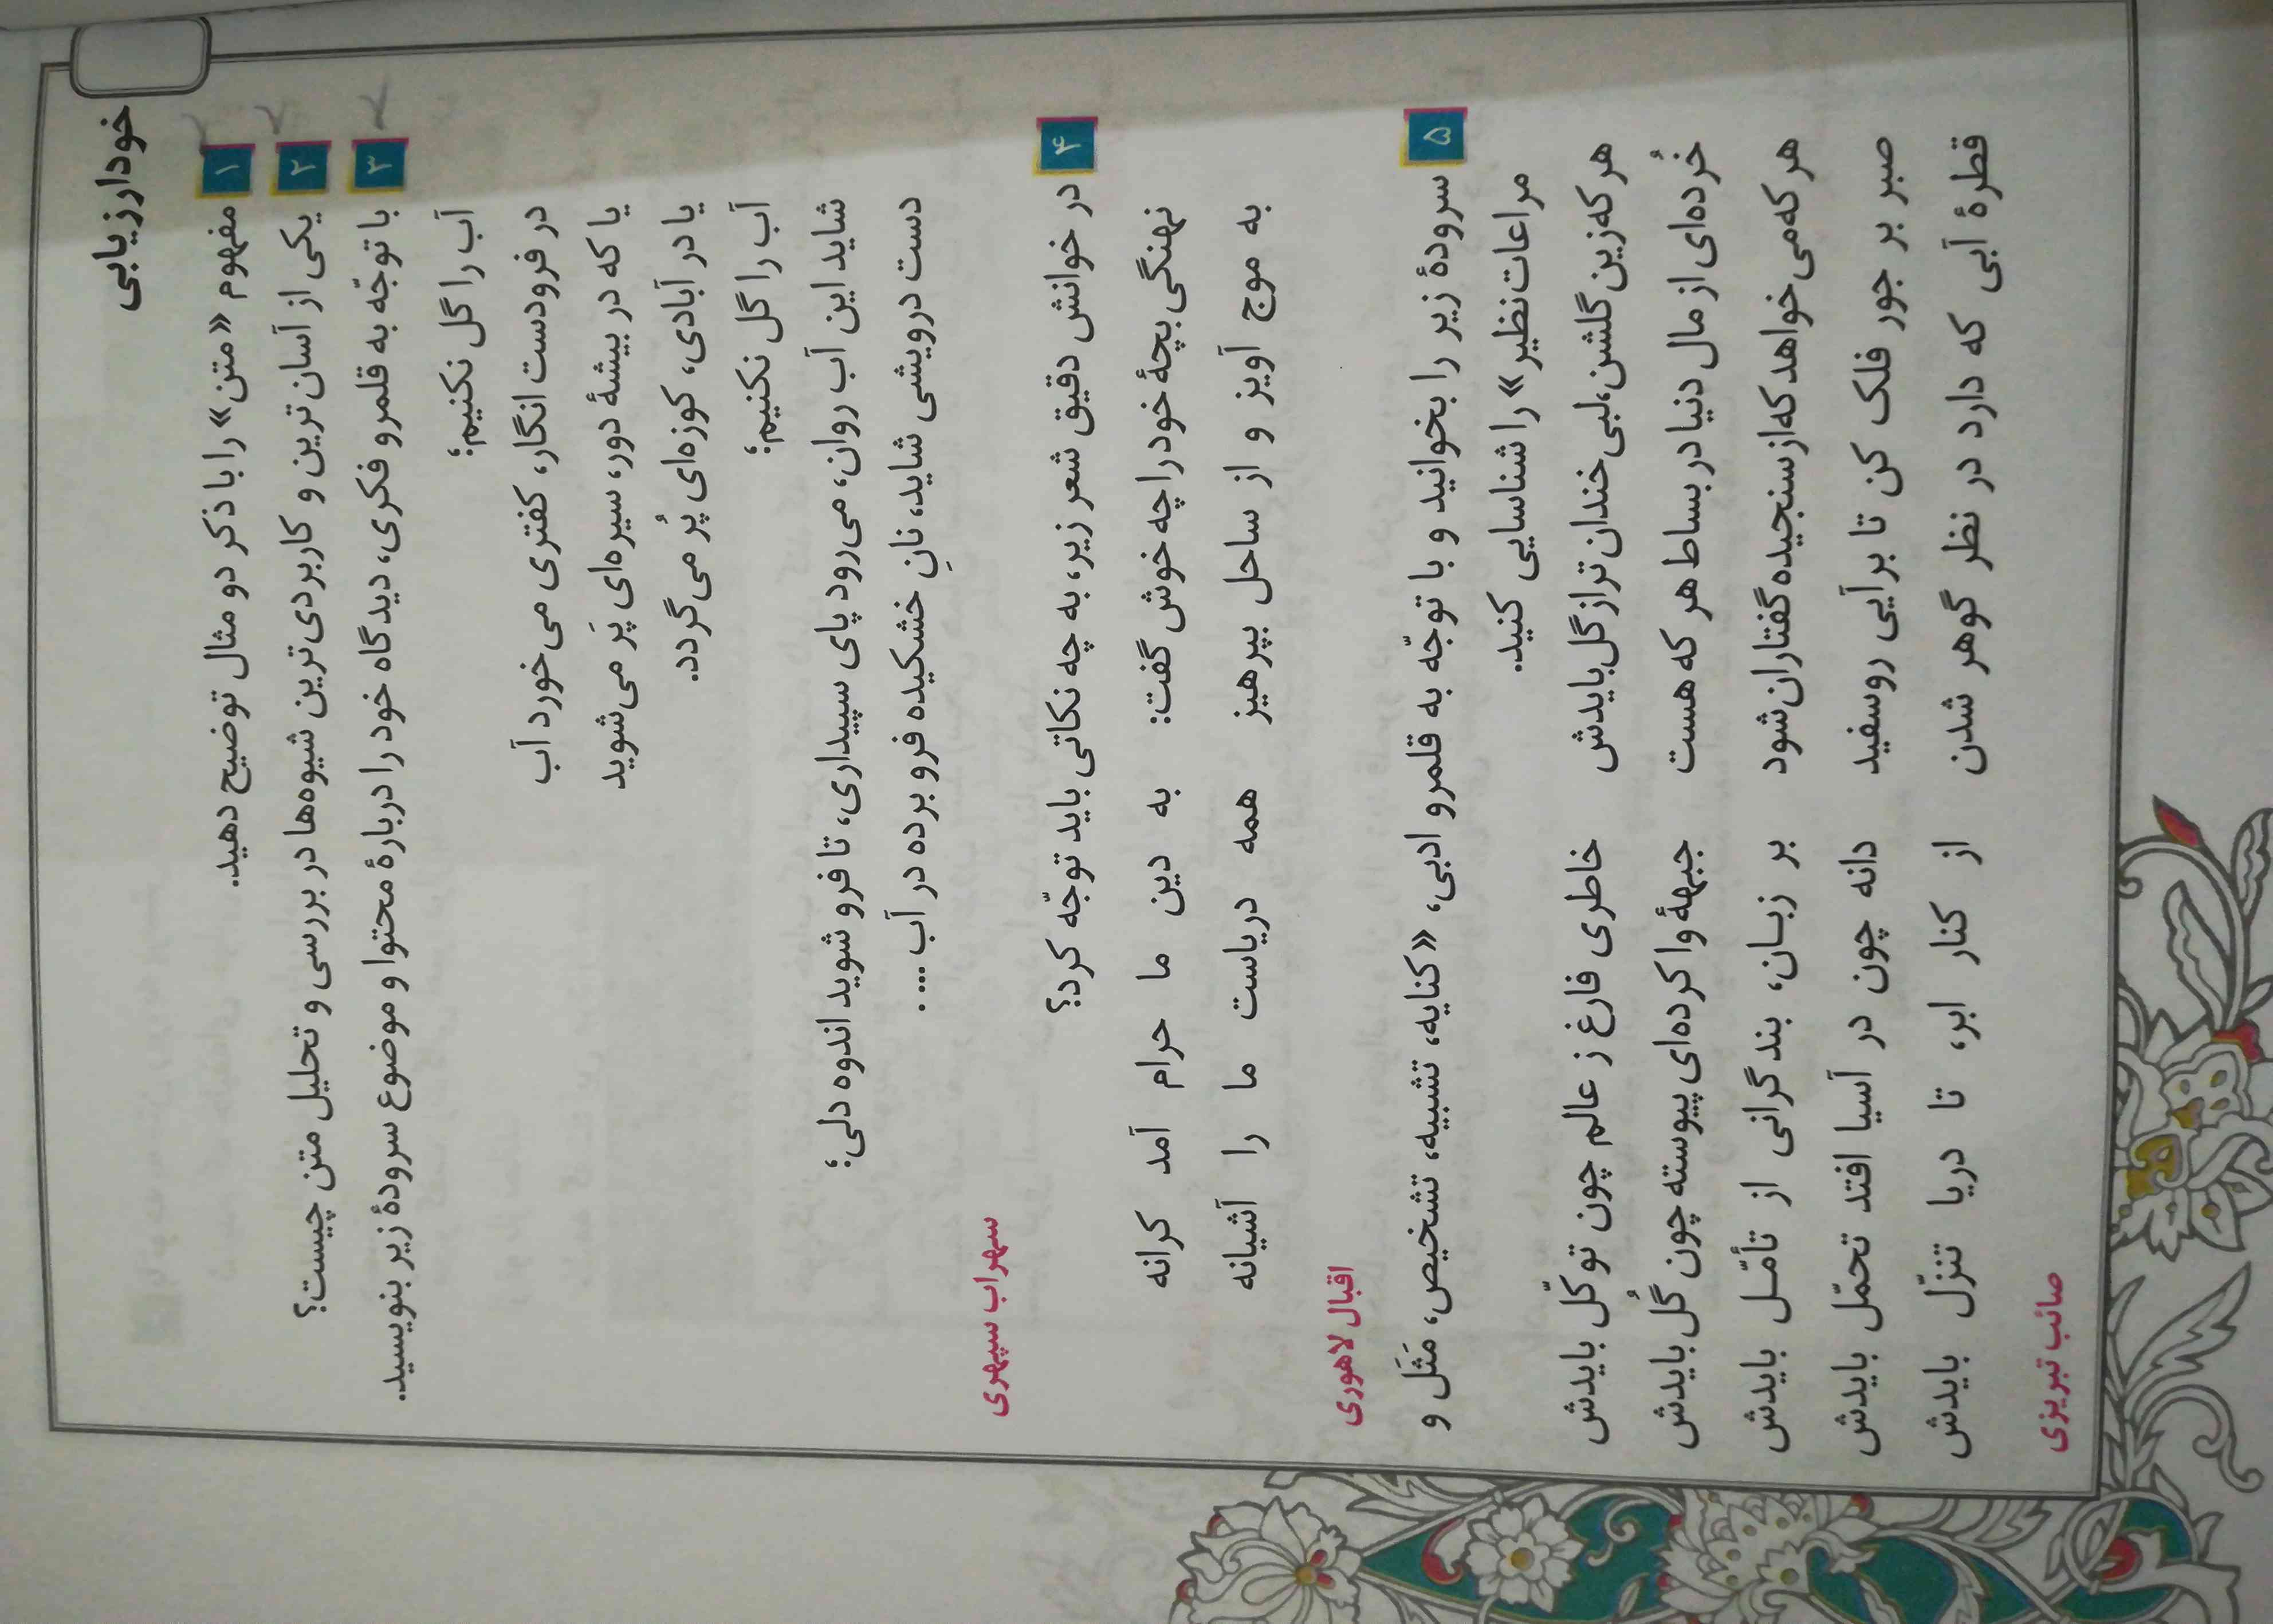 خودارزیابی
۱ مفهوم «متن» را با ذکر دو مثال توضیح دهید.
۲ یکی از آسان ترین و کاربردی ترین شیوه‌ها در بررسی و تحلیل متن چیست؟
۳ با توجّه به قلمرو فکری، دیدگاه خود را دربارهٔ محتوا و موضوع سرودهٔ زیر بنویسید.
آب را گل نکنیم؛
در فرودست انگار، کفتری می‌خورد آب
یا که در بیشهٔ دور، سیره‌ای پَر می‌شوید
یا در آبادی، کوزه‌ای پُر می‌گردد.
آب را گل نکنیم؛
شاید این آب روان، می‌رود پای سپیداری، تا فرو شوید اندوه دلی؛
دست درویشی شاید، نانِ خشکیده فرو برده در آب ....
سهراب سپهری
۴ در خوانش دقیق شعر زیر، به چه نکاتی باید توجّه کرد؟
نهنگی بچهٔ خود را چه خوش گفت: به دین ما حرام آمد کرانه
به موج آویز و از ساحل بپرهیز همه دریاست ما را آشیانه
اقبال لاهوری
۵ سرودهٔ زیر را بخوانید و با توجّه به قلمرو ادبی، «کنایه، تشبیه، تشخیص، مَثَل و
مراعات نظیر» را شناسایی کنید.
هر که زین گلشن، لبی خندان تر از گل بایدش خاطری فارغ ز عالم چون توکّل بایدش
خُرده‌ای از مال دنیا در بساط هر که هست جبههٔ وا کرده‌ای پیوسته چون گُل بایدش
هر که می خواهد که از سنجیده گفتاران شود بر زبان، بند گرانی از تأمّل بایدش
صبر بر جور فلک کن تا بر آیی روسفید دانه چون در آسیا افتد تحمّل بایدش
قطرهٔ آبی که دارد در نظر گوهر شدن از کنار ابر، تا دریا تنزّل بایدش
صائب تبریزی